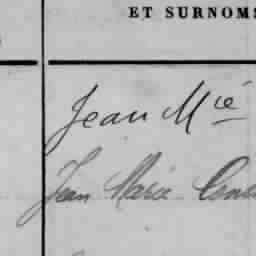 ET SURNOMS
Jean Mié
Jean Marie